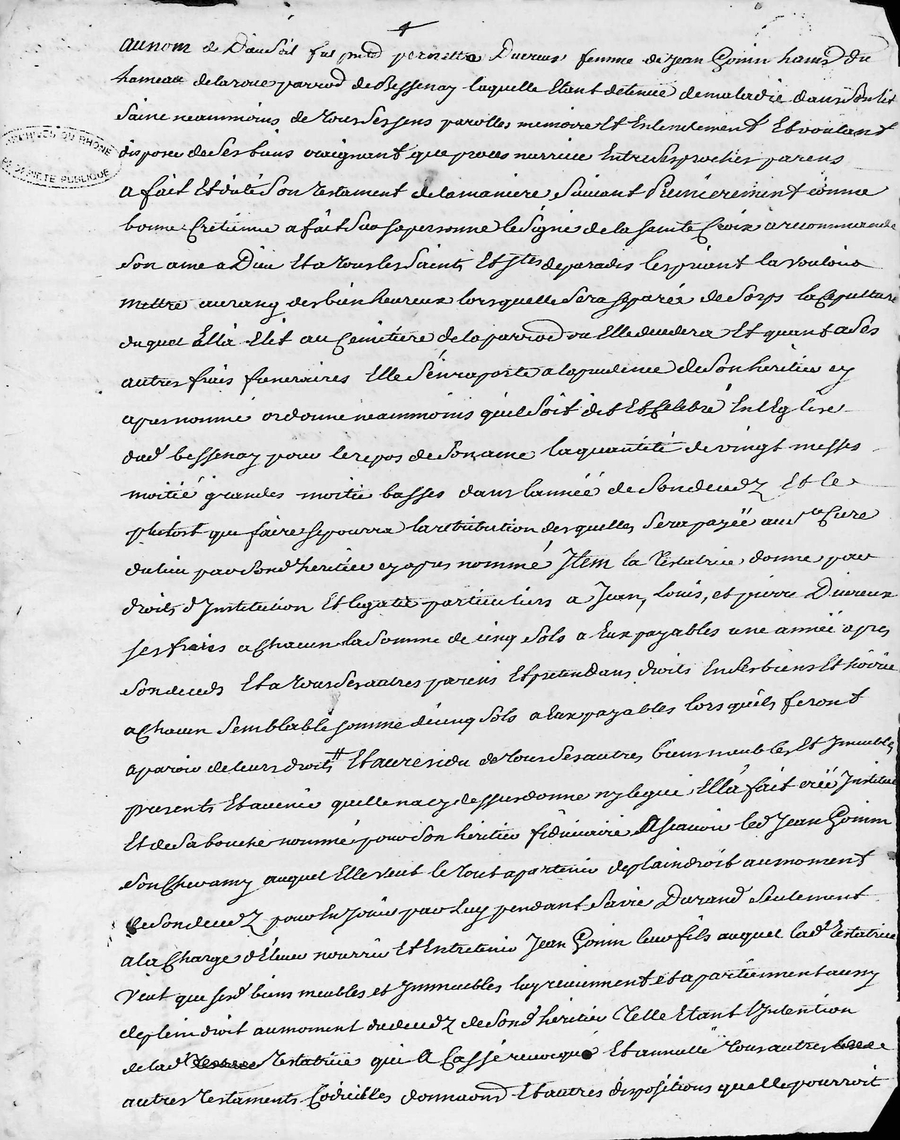 au nom de Dieu Soit fut pnte pernette Ducreux femme de Jean Gonin habt du
hameau de laroue parrod de Bessenay laquelle Etant detenüe de maladie dans Son lit
Saine neammoins de tous Ses sens parolles memoire Et Entendement Et voulant
dispose de Ses biens craignant que proces narrive Entre Ses proches parens
a fait Et dité Son testament de la maniere Suivant Premierement comme
bonne Cretiene a fait Sur sa personne le Signe de la Sainte Croix a recommande
Son ame a Dieu Et a tous les Saints Et Stes de paradis les priant la vouloir
mettre au rang des bien heureux lors quelle Sera separée de Corps la Sepulture
duquel Ella Elit au Cemitiere de la parrod ou Elle decedera Et quant a Ses
autres frais funeraires Elle S'en raporte a la prudence de Son heritier cy
apres nommé ordonne neammoins quil Soit dit Et Celebré En lEglise
dud bessenay pour le repos de Son ame la quantité de vingt messes
moitié grandes moitie basses dans lannéé de Son decedz Et le
plutost que faire Se pourra la retribution des quelles Sera payéé au Sr Curé
du lieu par Sond heritier cy apres nommé Item la testatrice donne par
droits d'Institution Et legats particuliers a Jean, Louis, et pierre Ducreux
ses frais a Chacun la Somme de cinq Sols a Eux payables une annéé apres
Son decéds Et a tous Ses autres parens Et pretendans droits En Ses biens Et hoirie
a Chacun Semblable Somme de cinq Sols a Eux payables lors quils feront
aparoir de leurs droits Et au residu de tous Ses autres biens meubles Et Immeubles
presents Et avenir quelle na cy dessus donne ny legué Ella fait créé Institué
Et de Sa bouche nommé pour Son heritier fiduciaire a Scavoir led Jean Gonin
Son Cher amy auquel Elle veut le tout apartenir de plain droit au moment
de Son decedz pour En Jouir par luy pendant Sa vie Durand Seulement
a la Charge d'Elever nourrir Et Entretenir Jean Gonin leur fils auquel lad testatrice
veut que Sesd biens meubles et Immeubles luy reviennent et apartiennent aussy
de plein droit au moment du decedz de Sond heritier telle Etant lIntention
de lad testatrice qui a Cassé revoqué Et annullé tous autres
autres testaments Codicilles donnaons Et autres dispositions quelle pourroit
ARCHIVES DU RHONE
PIETE PUBLIQUE